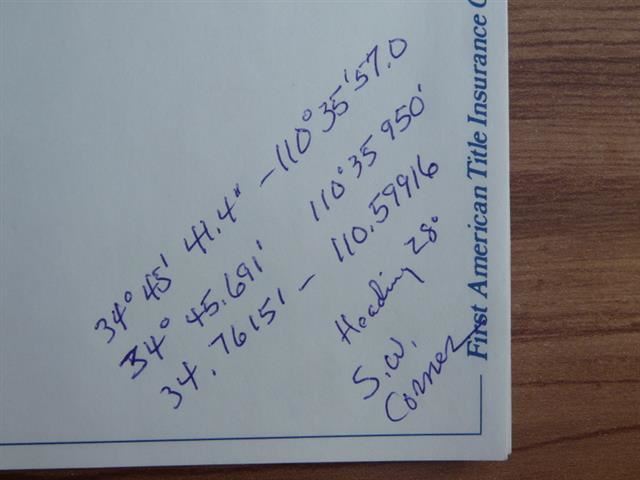 34° 45' 41.4" -110° 35' 57.0
34° 45.691' 110° 35 950'
34.76151 - 110.59916
Heading 28°
S.W.
Corner
First American Title Insurance